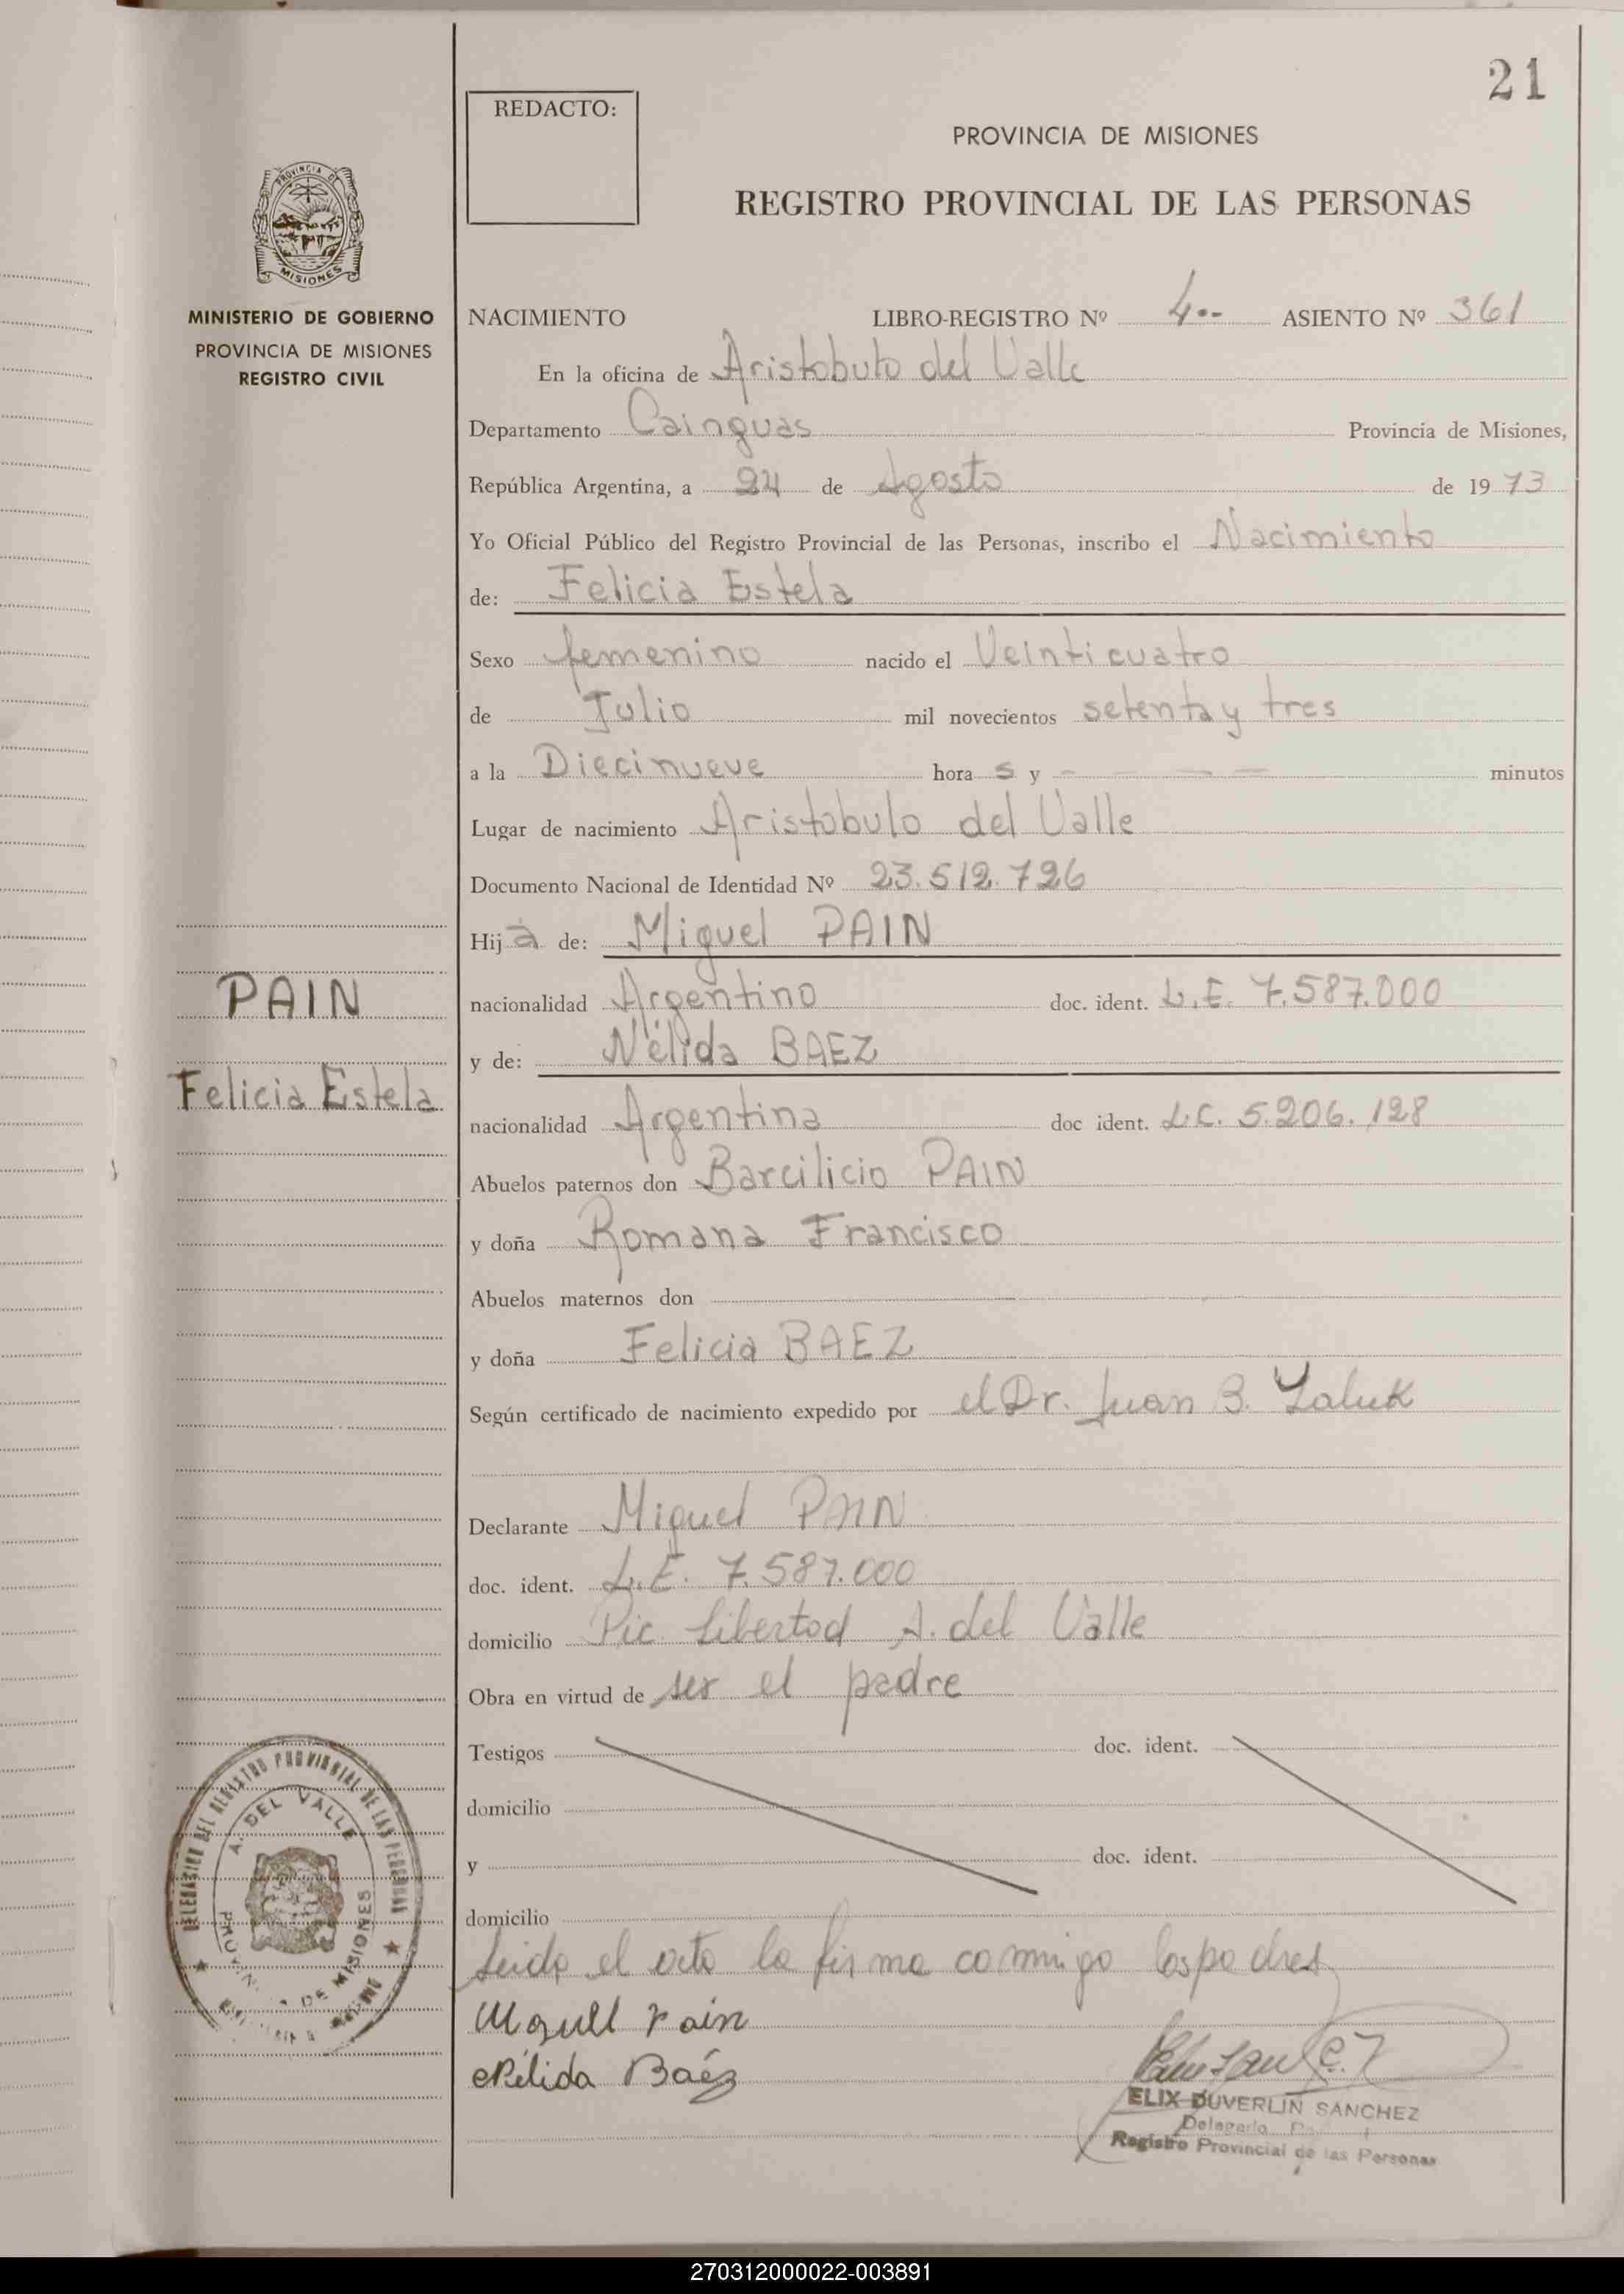 21
REDACTO:
PROVINCIA DE MISIONES
REGISTRO PROVINCIAL DE LAS PERSONAS
PROVINCIA DE
MISIONES
MINISTERIO DE GOBIERNO
PROVINCIA DE MISIONES
REGISTRO CIVIL
NACIMIENTO LIBRO-REGISTRO Nº 4.- ASIENTO Nº 361
En la oficina de Aristobulo del Valle
Departamento Cainguas Provincia de Misiones,
República Argentina, a 24 de Agosto de 1973
Yo Oficial Público del Registro Provincial de las Personas, inscribo el Nacimiento
de: Felicia Estela
Sexo femenino nacido el Veinticuatro
de Julio mil novecientos setenta y tres
a la Diecinueve hora s y - - - - minutos
Lugar de nacimiento Aristobulo del Valle
Documento Nacional de Identidad Nº 23.512.726
Hija de: Miguel PAIN
nacionalidad Argentino doc. ident. L.E. 7.587.000
y de: Nélida BAEZ
nacionalidad Argentina doc ident. L.C. 5.206.128
PAIN
Felicia Estela
Abuelos paternos don Barcilicio PAIN
y doña Romana Francisco
Abuelos maternos don
y doña Felicia BAEZ
Según certificado de nacimiento expedido por el Dr. Juan B. Yaluk
Declarante Miguel PAIN
doc. ident. L.E. 7.587.000
domicilio Pic. Libertad A. del Valle
Obra en virtud de ser el padre
Testigos doc. ident.
domicilio
y doc. ident.
domicilio
Leida el acta la firma conmigo los padres
Miguel Pain
Nélida Baéz
DELEGACION DEL REGISTRO PROVINCIAL DE LAS PERSONAS
A. DEL VALLE
DE MISIONES
ELIX DUVERLIN SANCHEZ
Delegado
Registro Provincial de las Personas
270312000022-003891